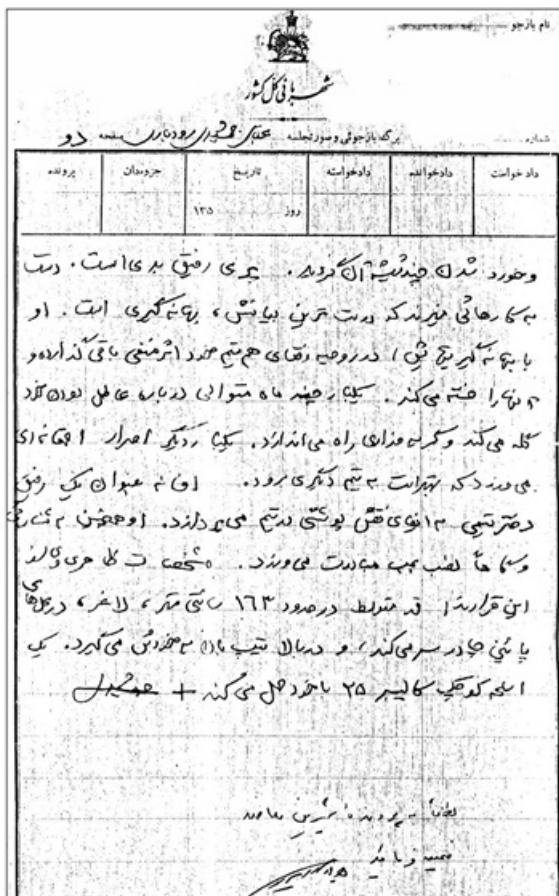 نام بازجو
شهربانی کل کشور
شماره
برگ بازجوئی و صورتجلسه عباس جمشیدی رودباری صفحه دو
دادخواست دادخوانده دادخواسته تاریخ جزوه‌دان پرونده
روز ۱۳۵
وخورد شدن چند شیشه آن گردید. پری رفیق بدی است. دست
به کارهائی میزند که درست ترین بیانش، بهانه گیری است. او
با بهانه گیریهایش، در روحیه رفقای هم تیم خود اثر منفی باقی گذارده و
آنها را خسته می‌کند. یکبار چند ماه متوالی درباره عاطل بودن خود
گله می‌کند و گریه و زاری راه می‌اندازد. یکبار دیگر اصرار احمقانه‌ای
می‌ورزد که بهتر است به تیم دیگری برود. او به عنوان یک رفیق
دختر تیمی به ایفای نقش پوششی در تیم می‌پردازد. او همچنین به شناسائی
و بمب مبادرت می‌ورزد. مشخصات ظاهری او از
این قرارند: قد متوسط در حدود ۱۶۳ سانتی متر، لاغر، در محله‌های
پائین چادر سر می‌کند، و در بالا تیپ به خودش می‌گیرد. یک
اسلحه کوچک کالیبر ۲۵ با خود حمل می‌کند +
لطفاً به پرونده شیرین معاضد
ضمیمه فرمائید